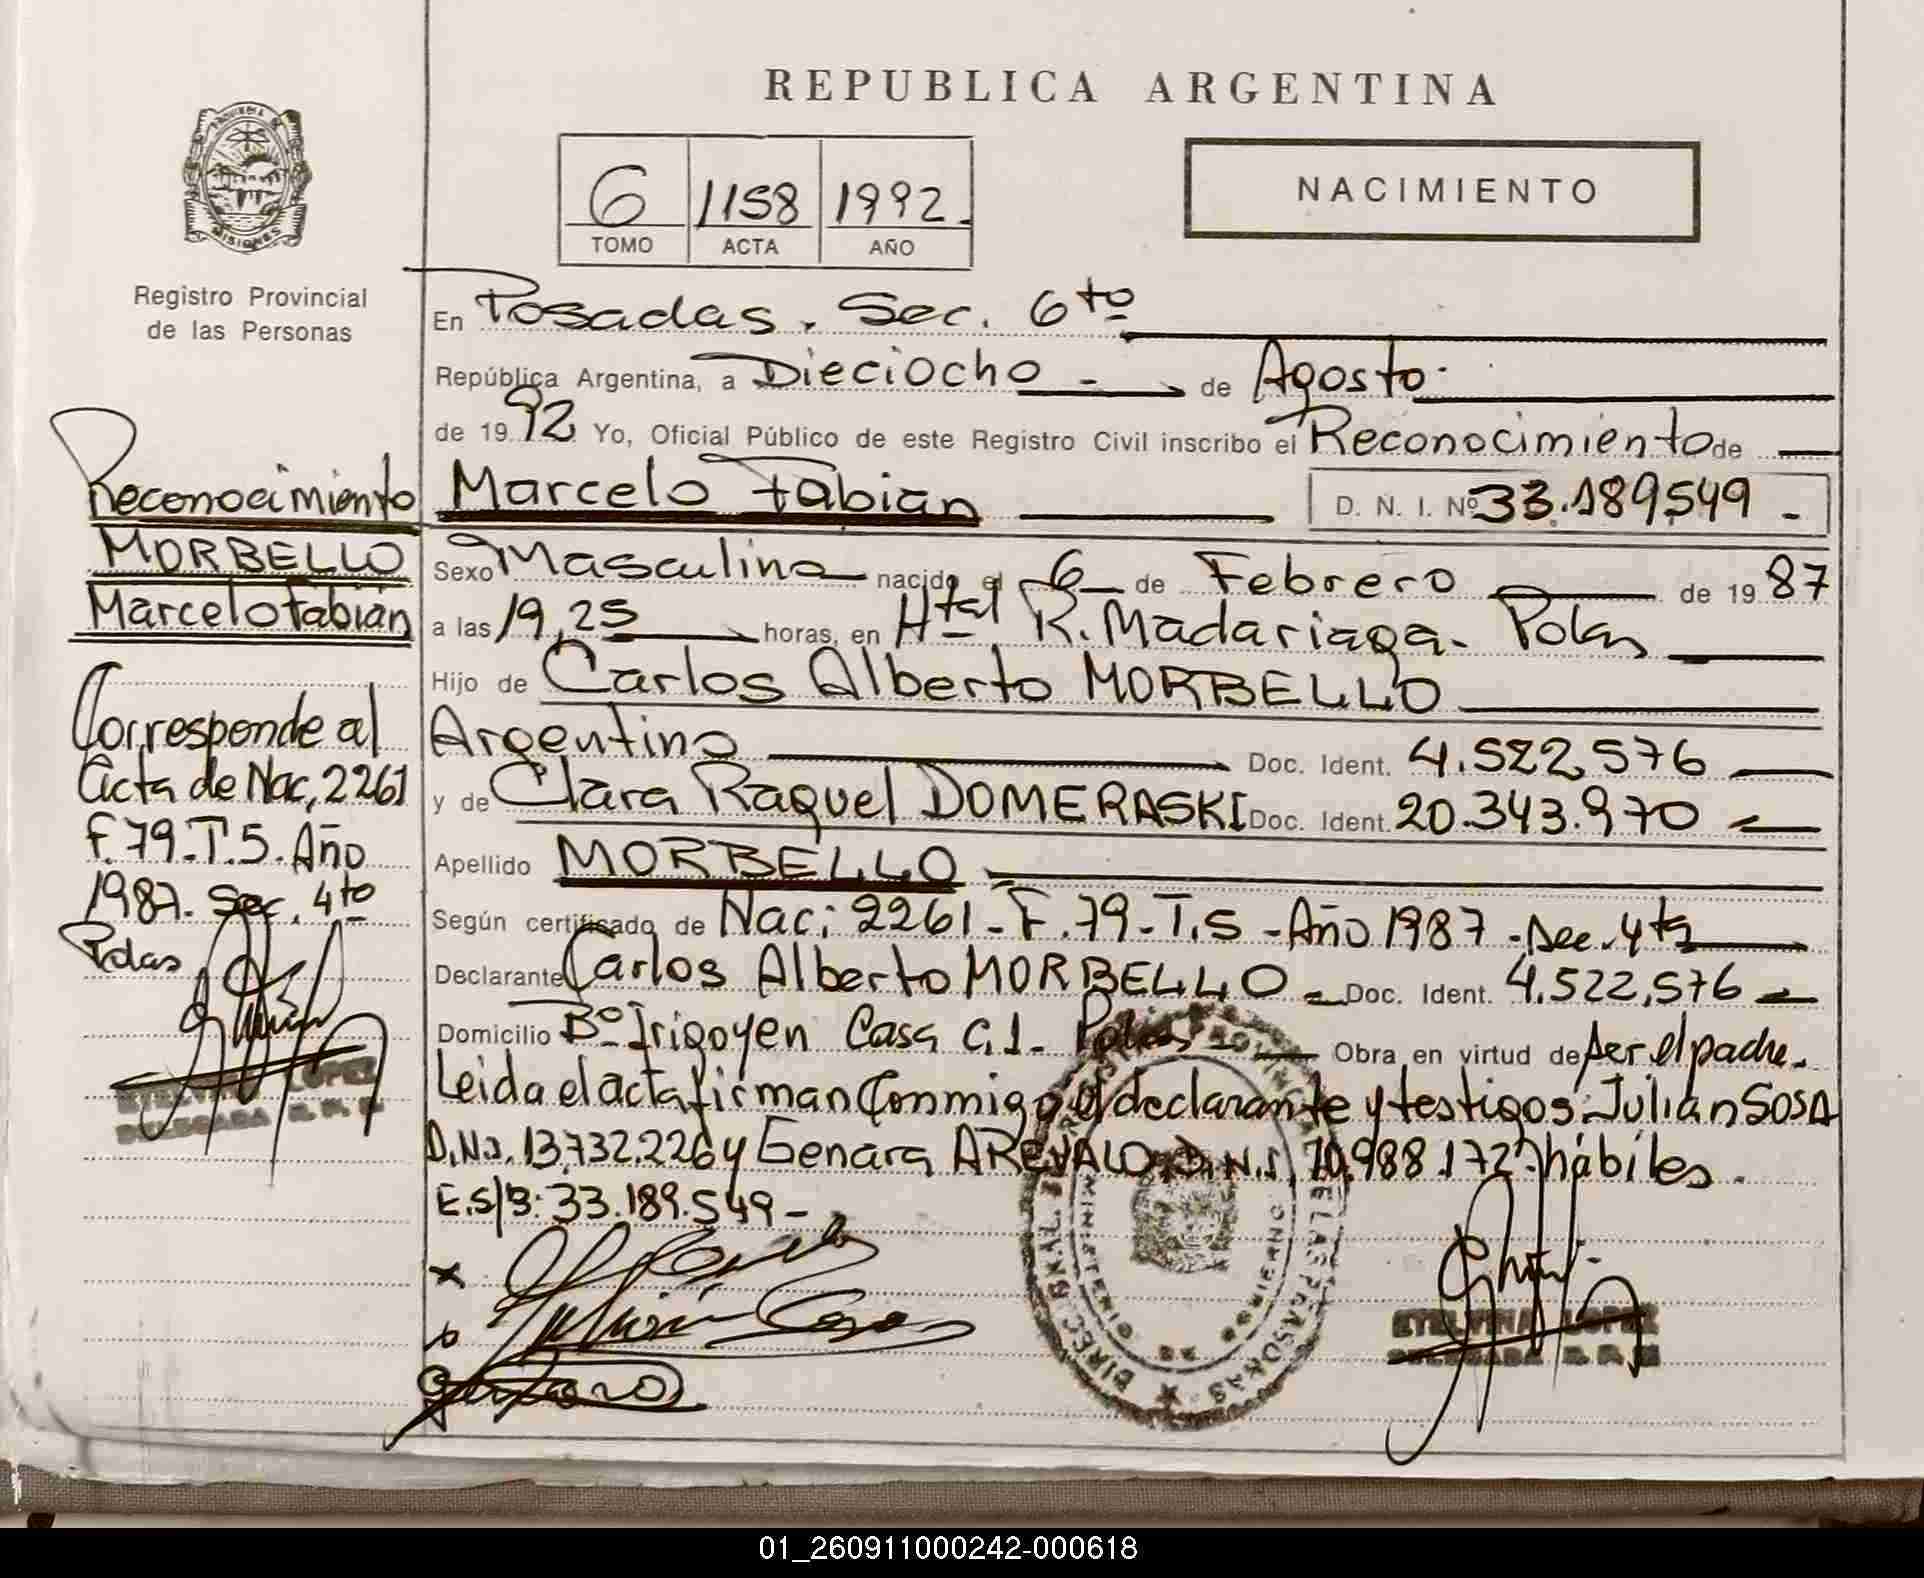 REPUBLICA ARGENTINA
6 1158 1992.
TOMO ACTA AÑO
NACIMIENTO
PROVINCIA DE
MISIONES
Registro Provincial
de las Personas
En Posadas. Sec. 6to
República Argentina, a Dieciocho - de Agosto.
de 19 92 Yo, Oficial Público de este Registro Civil inscribo el Reconocimiento de
Marcelo Fabian D. N. I. Nº 33.189.549 -
Sexo Masculino nacido el 6 de Febrero de 19 87
a las 19,25 horas, en Htal R. Madariaga. Pdas
Hijo de Carlos Alberto MORBELLO
Argentino Doc. Ident. 4.522.576
y de Clara Raquel DOMERASKI Doc. Ident. 20.343.970
Apellido MORBELLO
Según certificado de Nac: 2261 - F. 79 - T. 5 - Año 1987 - Sec. 4ta
Declarante Carlos Alberto MORBELLO Doc. Ident. 4.522.576
Domicilio Bº Irigoyen Casa C. 1. Pdas Obra en virtud de ser el padre.
Leida el acta firman Conmigo el declarante y testigos: Julián SOSA
D.N.I. 13.732.226 y Genara AREVALO D.N.I. 10.988.172 hábiles.
E.S/B: 33.189.549 -
Reconocimiento
MORBELLO
Marcelo Fabián
Corresponde al
Acta de Nac, 2261
F. 79 - T. 5. Año
1987. Sec. 4to
Pdas
ETELVINA LOPEZ
DELEGADA R. P. P.
Julián Sosa
DIREC. GRAL.
PROVINCIAL DE LAS PERSONAS
MINISTERIO DE GOBIERNO
ETELVINA LOPEZ
DELEGADA R. P. P.
01_260911000242-000618